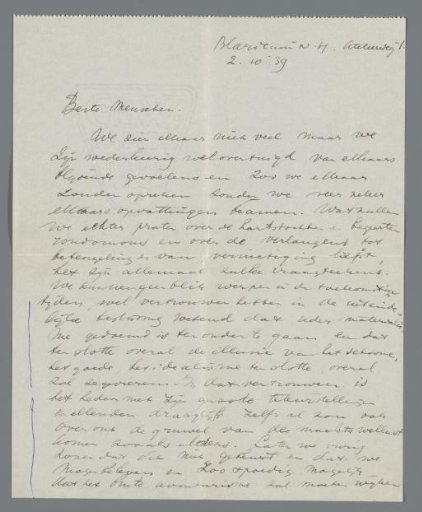 Blaricum N.H.
2.10 '39
Beste Menschen.
We zien elkaar niet veel maar we
zijn wederkeerig wel overtuigd van elkaars
blijvende gevoelens en zoo we elkaar
zouden spreken zouden we zeer zeker
elkaars opvattingen beamen. Wat zullen
we echter praten over de hartstochten &
rondomons en over de verlangens tot
van vernietiging
het zijn allemaal zulke vraagteekens.
We kunnen geen blik werpen in de toekomstige
tijden, wel vertrouwen hebben in de uiteinde-
lijke beslissing wetend dat ieder materialis-
me gedoemd is ten onder te gaan en dat
ten slotte overal de illusie van het schoone,
het goede, het idealisme ten slotte overal
zal zegevieren. In dat vertrouwen is
het heden met zijn groote teleurstellingen
& ellenden draaglijk zelfs al zou ook
over ons de gruwel van des menschen
komen zooals elders. Laten we
hopen dat dit niet gebeurt en dat we
mogen beleven en zoo spoedig mogelijk
dat het zal moeten wijken